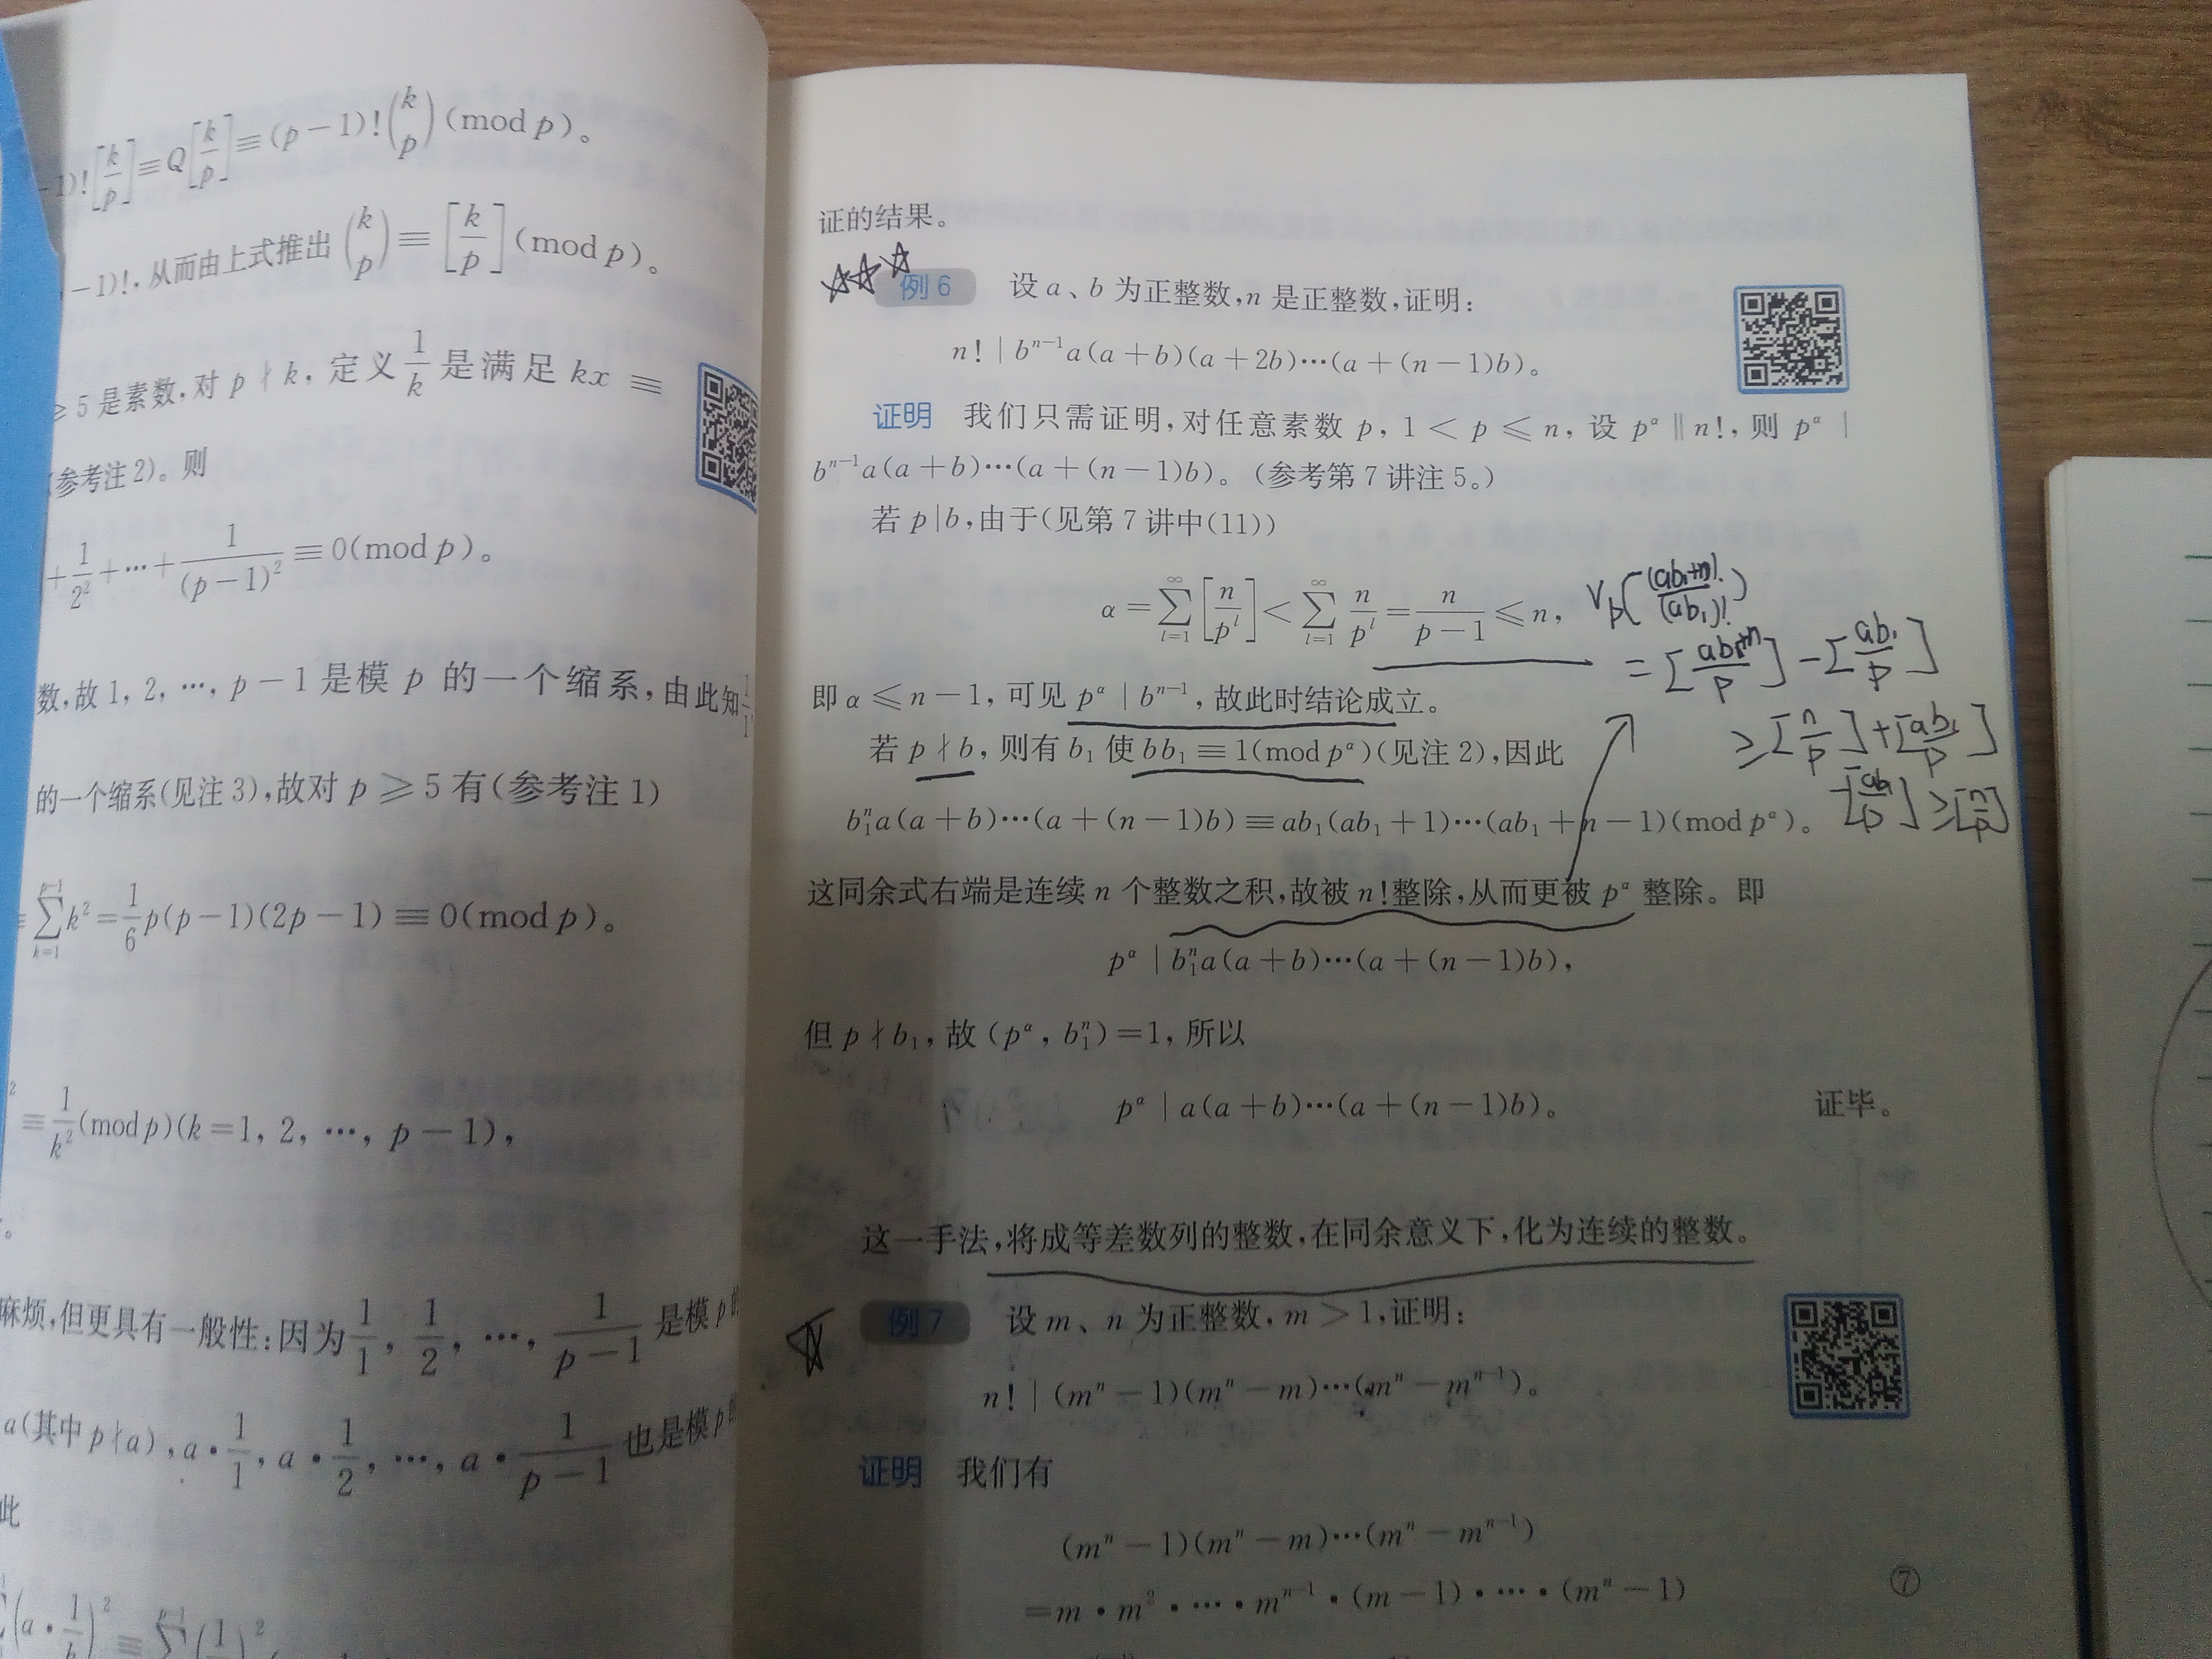 -1)![k/p]≡Q[k/p]≡(p-1)!(k p)(mod p)。
-1)!,从而由上式推出(k p)≡[k/p](mod p)。
≥5是素数,对p∤k,定义1/k是满足kx≡
(参考注2)。则
+1/2²+…+1/(p-1)²≡0(mod p)。
数,故1,2,…,p-1是模p的一个缩系,由此知1/1
的一个缩系(见注3),故对p≥5有(参考注1)
≡∑_{k=1}^{p-1}k²=1/6p(p-1)(2p-1)≡0(mod p)。
²≡1/k²(mod p)(k=1,2,…,p-1),
。
麻烦,但更具有一般性:因为1/1,1/2,…,1/(p-1)是模p的
a(其中p∤a),a·1/1,a·1/2,…,a·1/(p-1)也是模p的
此
(a·1/k)²≡∑(1/k)²
证的结果。
☆☆☆ 例6 设a、b为正整数,n是正整数,证明:
n!|bⁿ⁻¹a(a+b)(a+2b)…(a+(n-1)b)。
证明 我们只需证明,对任意素数p,1<p≤n,设p^α‖n!,则p^α|
bⁿ⁻¹a(a+b)…(a+(n-1)b)。(参考第7讲注5。)
若p|b,由于(见第7讲中(11))
α=∑_{l=1}^∞[n/p^l]<∑_{l=1}^∞ n/p^l=n/(p-1)≤n,
即α≤n-1,可见p^α|bⁿ⁻¹,故此时结论成立。
若p∤b,则有b₁使bb₁≡1(mod p^α)(见注2),因此
b₁ⁿa(a+b)…(a+(n-1)b)≡ab₁(ab₁+1)…(ab₁+n-1)(mod p^α)。
这同余式右端是连续n个整数之积,故被n!整除,从而更被p^α整除。即
p^α|b₁ⁿa(a+b)…(a+(n-1)b),
但p∤b₁,故(p^α,b₁ⁿ)=1,所以
p^α|a(a+b)…(a+(n-1)b)。 证毕。
V_p((ab₁+n)!/(ab₁)!)
=[(ab₁+n)/p]-[ab₁/p]
≥[n/p]+[ab₁/p]
-[ab₁/p]≥[n/p]
这一手法,将成等差数列的整数,在同余意义下,化为连续的整数。
☆ 例7 设m、n为正整数,m>1,证明:
n!|(mⁿ-1)(mⁿ-m)…(mⁿ-mⁿ⁻¹)。
证明 我们有
(mⁿ-1)(mⁿ-m)…(mⁿ-mⁿ⁻¹)
=m·m²·…·mⁿ⁻¹·(m-1)·…·(mⁿ-1) ⑦